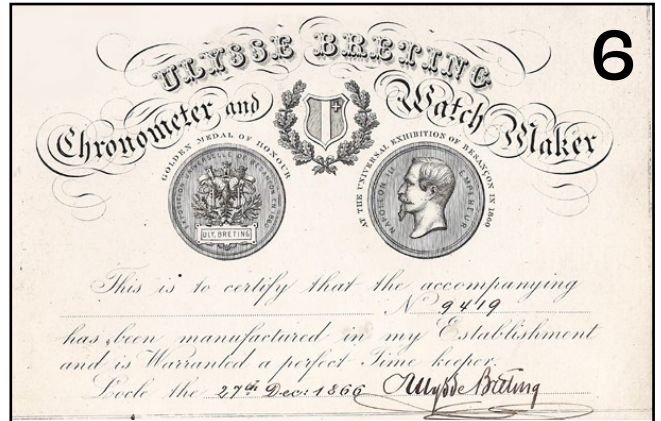 6
ULYSSE BRETING
Chronometer and Watch Maker
GOLDEN MEDAL OF HONOUR
EXPOSITION UNIVERSELLE DE BESANÇON EN 1860
ULT. BRETING
AT THE UNIVERSAL EXHIBITION OF BESANÇON IN 1860
NAPOLEON III EMPEREUR
This is to certify that the accompanying
No 9419
has been manufactured in my Establishment
and is Warranted a perfect Time keeper.
Locle the 27th Dec: 1866 Ulysse Breting